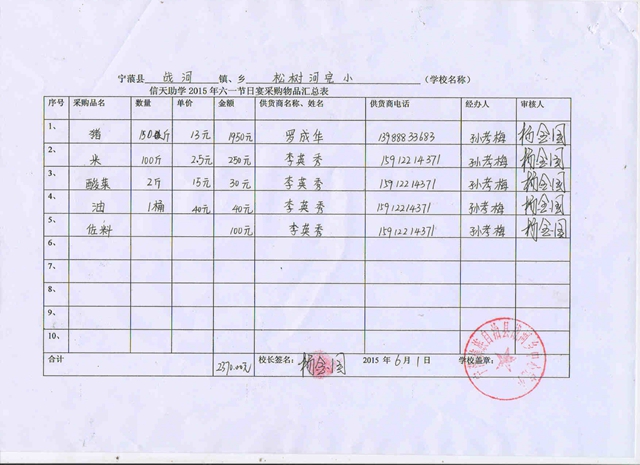 宁蒗县 战河 镇、乡 松树河完小 (学校名称)
信天助学 2015 年六一节日宴采购物品汇总表
序号 采购品名 数量 单价 金额 供货商名称、姓名 供货商电话 经办人 审核人
1、 猪 150斤 13元 1950元 罗成华 13988833683 孙孝梅 杨金国
2、 米 100斤 2.5元 250元 李英秀 15912214371 孙孝梅 杨金国
3、 酸菜 2斤 15元 30元 李英秀 15912214371 孙孝梅 杨金国
4、 油 1桶 40元 40元 李英秀 15912214371 孙孝梅 杨金国
5、 佐料 100元 李英秀 15912214371 孙孝梅 杨金国
6、
7、
8、
9、
10、
合计 2370.00元 校长签名: 杨金国 2015 年 6 月 1 日 学校盖章: